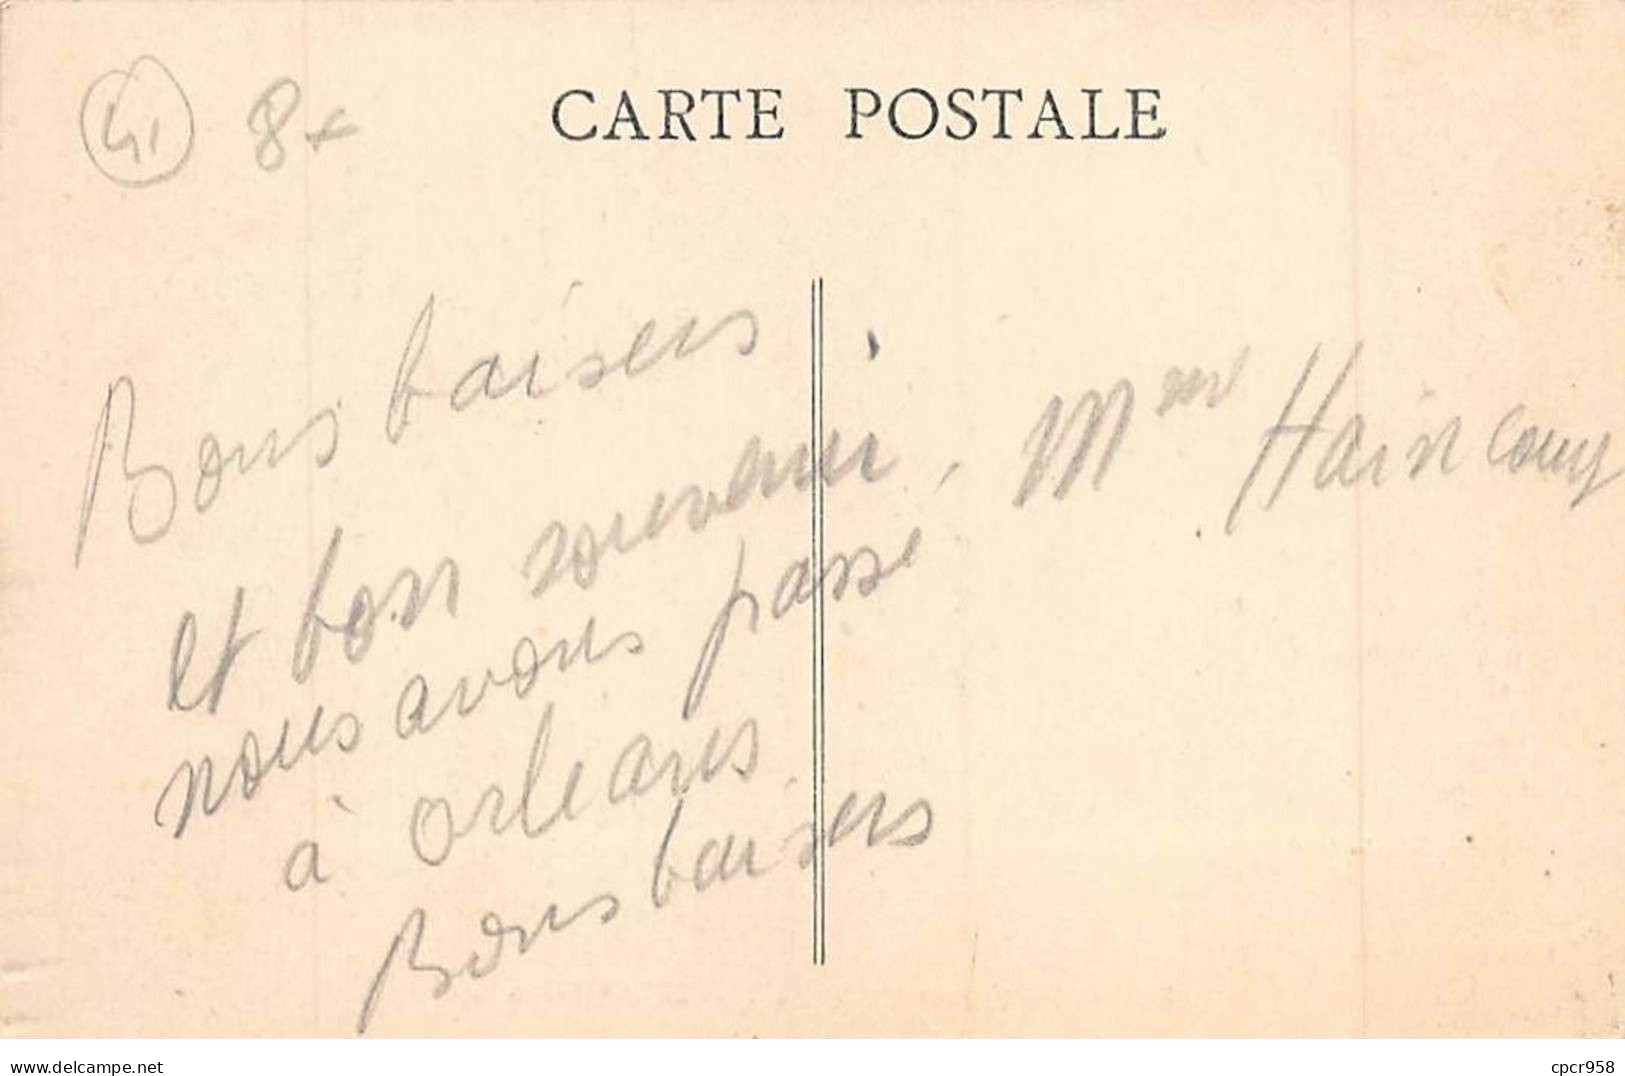 41 8x
CARTE POSTALE
Bons baisers
et bon souvenir
nous avons passé
à Orléans.
Bons baisers
Mme Haincourt
www.delcampe.net
cpcr958